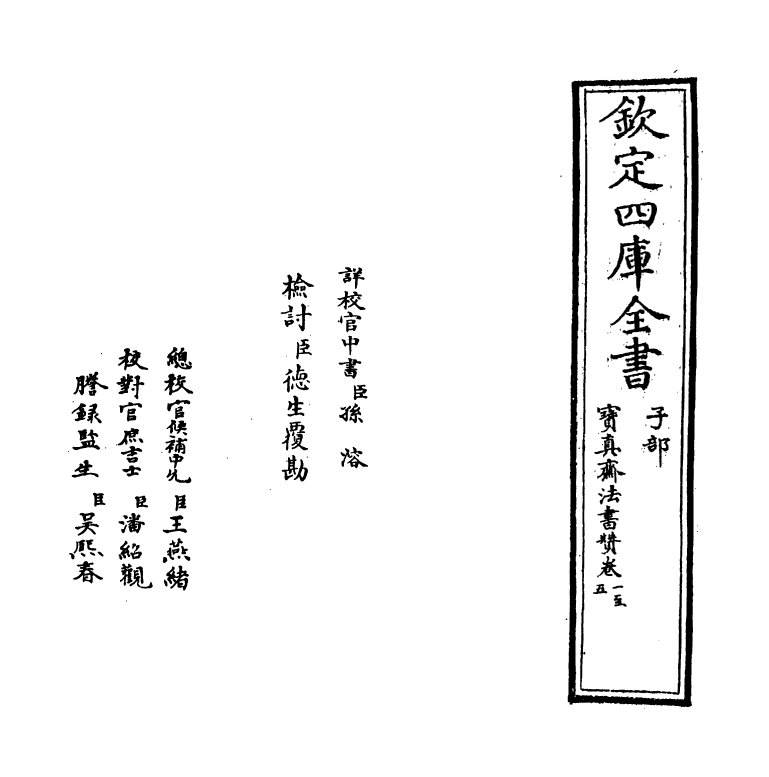 欽定四庫全書
子部
寶真齋法書贊卷一至五
詳校官中書臣孫溶
檢討臣德生覆勘
總校官候補中允臣王燕緒
校對官庶吉士臣潘紹觀
謄錄監生臣吳熈春